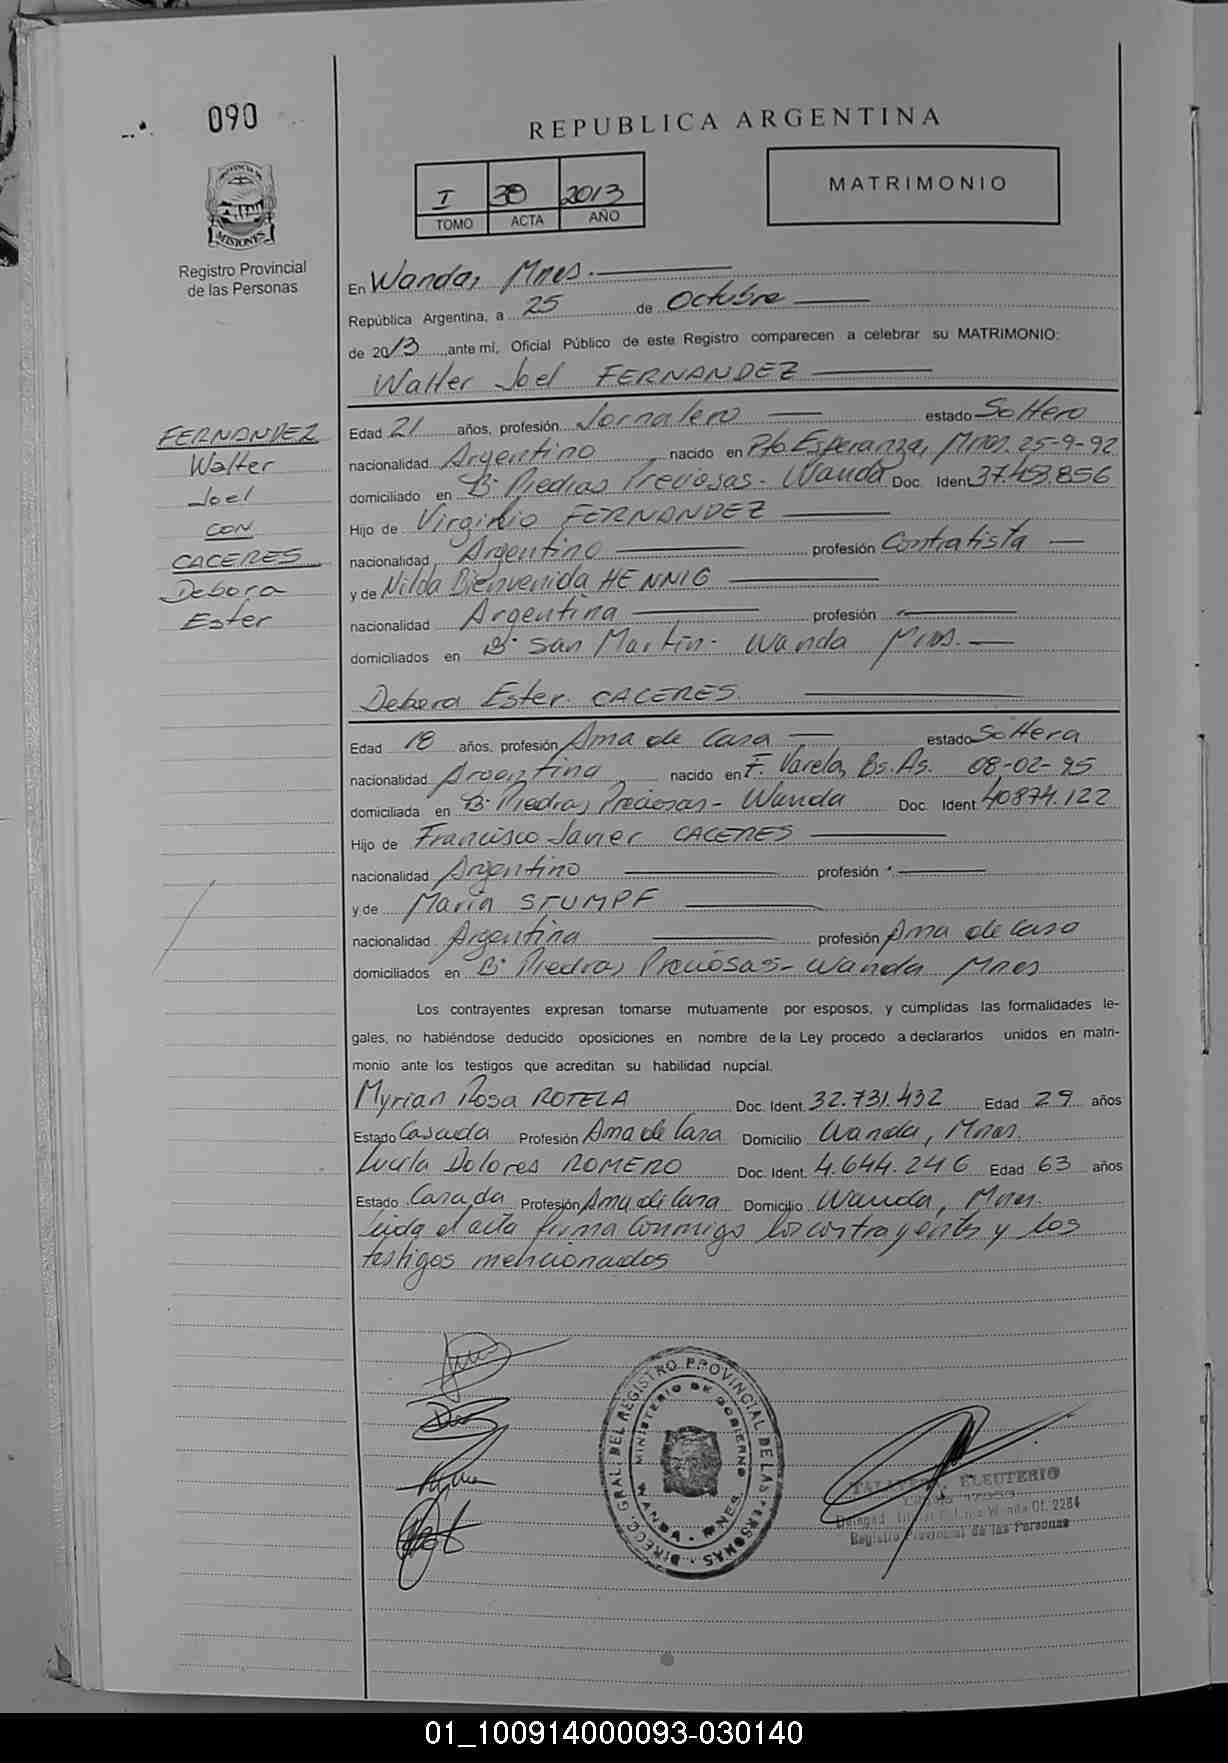 090
REPUBLICA ARGENTINA
PROVINCIA DE
MISIONES
Registro Provincial
de las Personas
I 2013
TOMO ACTA AÑO
MATRIMONIO
En Wanda, Mnes.
República Argentina, a 25 de Octubre
de 2013 ,ante mí, Oficial Público de este Registro comparecen a celebrar su MATRIMONIO:
Walter Joel FERNANDEZ
FERNANDEZ
Walter
Joel
CON
CACERES
Debora
Ester
Edad 21 años, profesión Jornalero estado Soltero
nacionalidad Argentino nacido en Pto. Esperanza, Mnes. 25-9-92
domiciliado en B° Piedras Preciosas - Wanda Doc. Ident. 37.453.856
Hijo de Virginio FERNANDEZ
nacionalidad Argentino profesión Contratista
y de Nilda Bienvenida HENNIG
nacionalidad Argentina profesión
domiciliados en B° San Martín - Wanda Mnes.
Debora Ester CACERES
Edad 18 años, profesión Ama de Casa estado Soltera
nacionalidad Argentina nacido en F. Varela, Bs. As. 08-02-95
domiciliada en B° Piedras Preciosas - Wanda Doc. Ident. 40874.122
Hijo de Francisco Javier CACERES
nacionalidad Argentino profesión
y de Maria STUMPF
nacionalidad Argentina profesión Ama de Casa
domiciliados en B° Piedras Preciosas - Wanda Mnes
Los contrayentes expresan tomarse mutuamente por esposos, y cumplidas las formalidades le-
gales, no habiéndose deducido oposiciones en nombre de la Ley procedo a declararlos unidos en matri-
monio ante los testigos que acreditan su habilidad nupcial.
Myrian Rosa ROTELA Doc. Ident. 32.731.432 Edad 29 años
Estado Casada Profesión Ama de Casa Domicilio Wanda, Mnes.
Lucila Dolores ROMERO Doc. Ident. 4.644.246 Edad 63 años
Estado Casada Profesión Ama de Casa Domicilio Wanda, Mnes.
Leida el acta firma conmigo los contrayentes y los
testigos mencionados
DIRECC. GRAL. DEL REGISTRO PROVINCIAL DE LAS PERSONAS
MINISTERIO DE GOBIERNO
WANDA - MNES.
ELEUTERIO
Wanda Of. 2284
Registro Provincial de las Personas
01_100914000093-030140